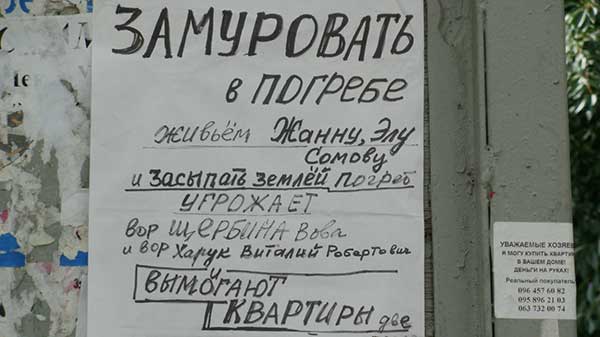 ЗАМУРОВАТЬ
в ПОГРЕБЕ
живьём Жанну, Элу
Сомову
и засыпать землёй погреб
УГРОЖАЕТ
вор ЩЕРБИНА Вова
и вор Харук Виталий Робертович
ВЫМОГАЮТ
КВАРТИРЫ две
УВАЖАЕМЫЕ ХОЗЯЕВ
Я МОГУ КУПИТЬ КВАРТИ
В ВАШЕМ ДОМЕ!
ДЕНЬГИ НА РУКАХ!
Реальный покупатель
096 457 60 82
095 896 21 03
063 732 00 74